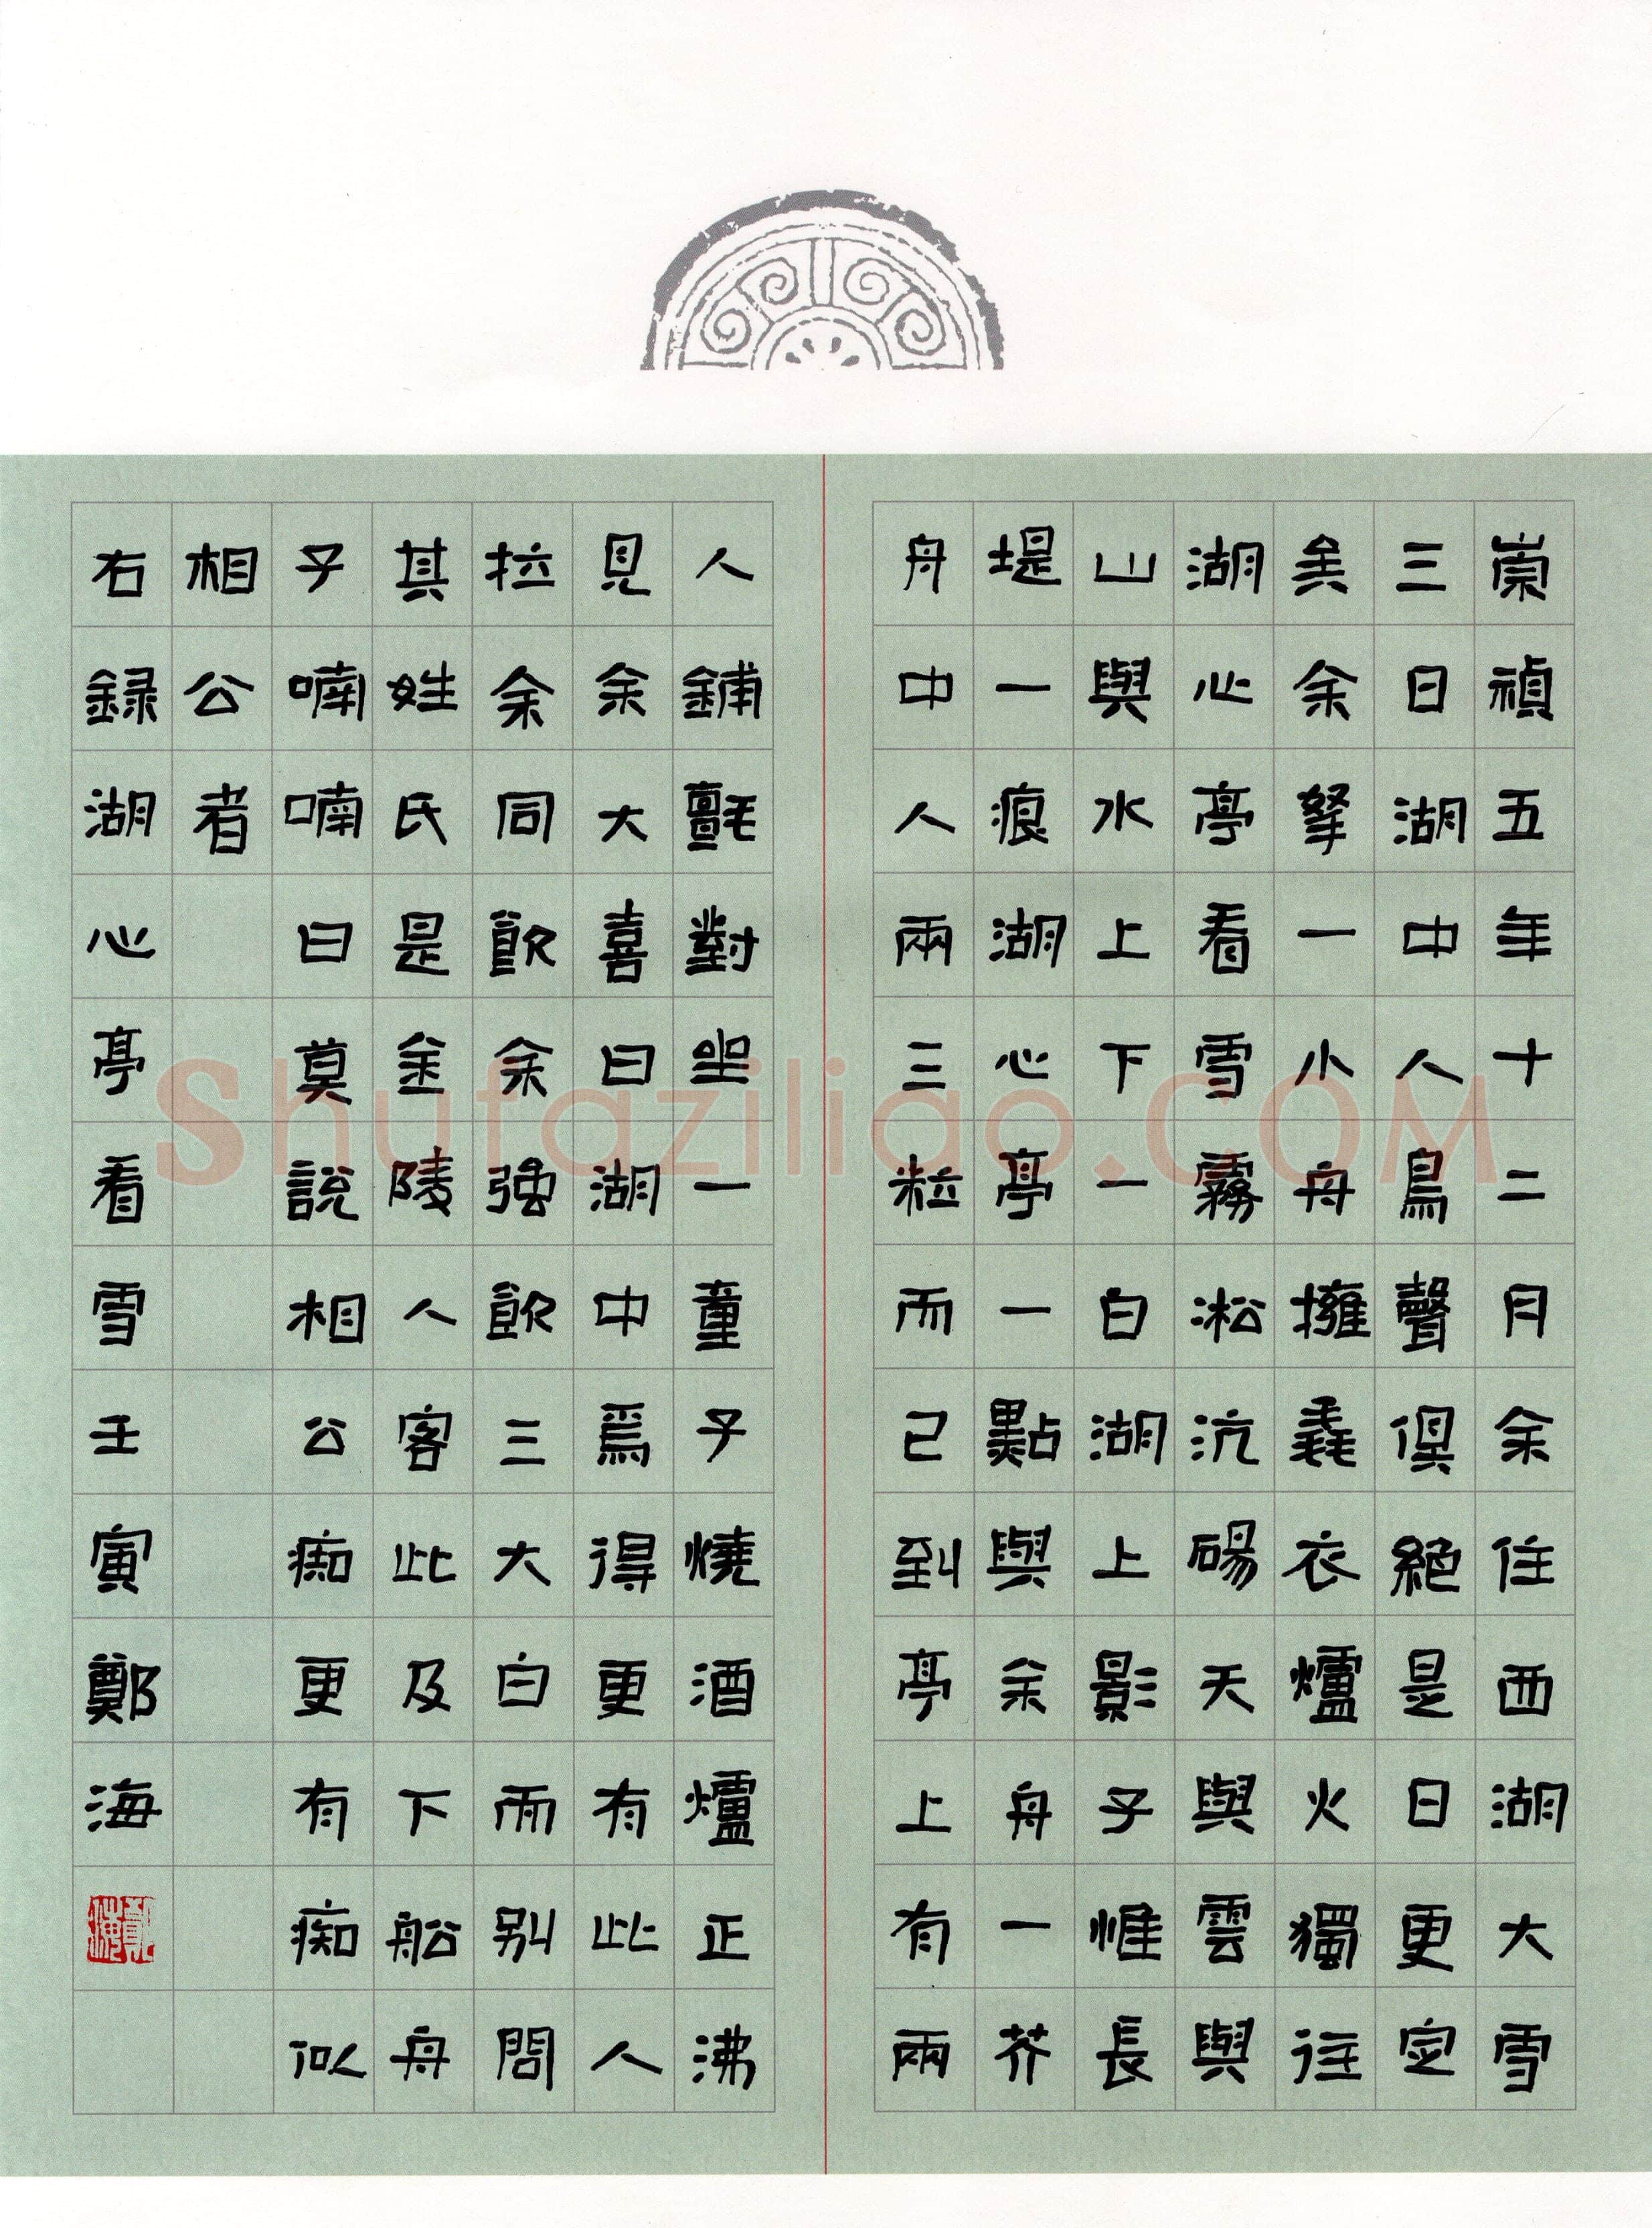 崇禎五年十二月余住西湖大雪
三日湖中人鳥聲俱絕是日更定
矣余拏一小舟擁毳衣爐火獨往
湖心亭看雪霧淞沆碭天與雲與
山與水上下一白湖上影子惟長
堤一痕湖心亭一點與余舟一芥
舟中人兩三粒而已到亭上有兩
人鋪氈對坐一童子燒酒爐正沸
見余大喜曰湖中焉得更有此人
拉余同飲余強飲三大白而别問
其姓氏是金陵人客此及下船舟
子喃喃曰莫說相公痴更有痴似
相公者
右録湖心亭看雪壬寅鄭海
鄭海
Shufaziliao.COM